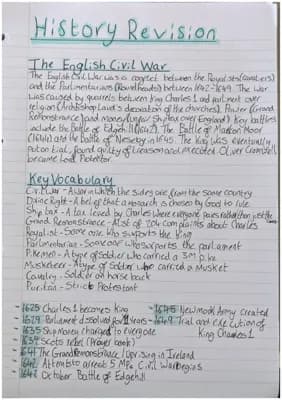 History Revision
The English Civil War
The English Civil War was a conflict between the Royalists (cavaliers)
and the Parliamentarians (Roundheads) between 1642-1649. The war
was caused by quarrels between King Charles 1 and parliament over
religion (Archbishop Laud's decoration of the churches), Power (Grand
Remonstrance) and money (unfair Ship tax over England) Key battles
include the Battle of Edgehill (1642), The Battle of Marston Moor
(1644) and the Battle of Naseby in 1645. The King was eventually
put on trial, found guilty of treason and executed. Oliver Cromwell
became Lord Protector.
Key Vocabulary
Civil War - A war in which the sides are from the same country
Divine Right - A belief that a monarch is chosen by God to rule
Ship tax - A tax issued by Charles where everyone pays rather than just the
Grand Remonstrance - A list of 204 complaints about Charles
Royalist - Someone who supports the King
Parliamentarian - Someone who supports the parliament
Pikemen - A type of soldier who carried a 3M pike
Musketeer - A type of soldier who carried a Musket
Cavalry - Soldier on horse back
Puritan - Strict Protestant
- 1625 Charles 1 becomes King
- 1629 Parliament dissolved for 11 years
- 1635 Ship money charged to everyone
- 1637 Scots rebel (Prayer book)
- 1641 The Grand Remonstrance / Uprising in Ireland
- 1642 Attempt to arrest 5 MPs. Civil War begins
- 1642 October Battle of Edgehill
- 1645 New model Army created
- 1649 Trial and execution of
King Charles 1